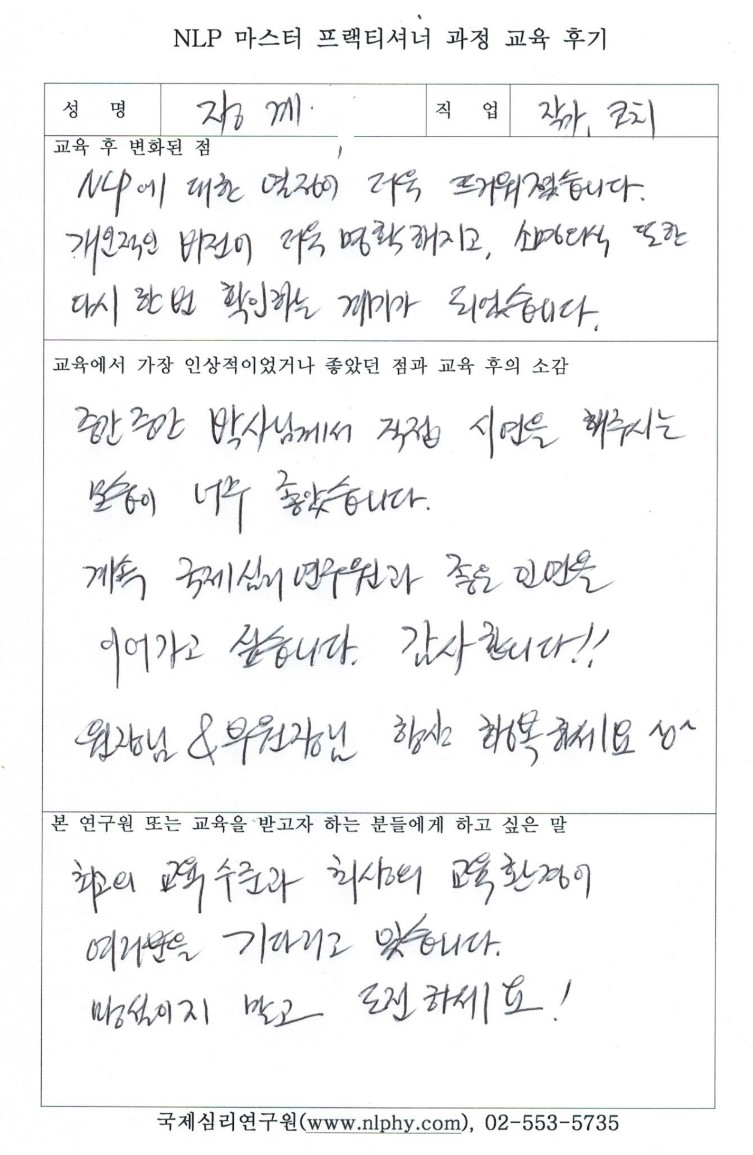 NLP 마스터 프랙티셔너 과정 교육 후기
성 명 장 계 직 업 작가, 코치
교육 후 변화된 점
NLP에 대한 열정이 더욱 뜨거워졌습니다.
개인적인 비전이 더욱 명확해지고, 소명의식 또한
다시 한번 확인하는 계기가 되었습니다.
교육에서 가장 인상적이었거나 좋았던 점과 교육 후의 소감
중간중간 박사님께서 직접 시연을 해주시는
모습이 너무 좋았습니다.
계속 국제심리연구원과 좋은 인연을
이어가고 싶습니다. 감사합니다!!
원장님 & 부원장님 항상 행복하세요 ^o^
본 연구원 또는 교육을 받고자 하는 분들에게 하고 싶은 말
최고의 교육수준과 최상의 교육환경이
여러분을 기다리고 있습니다.
망설이지 말고 도전하세요!
국제심리연구원(www.nlphy.com), 02-553-5735